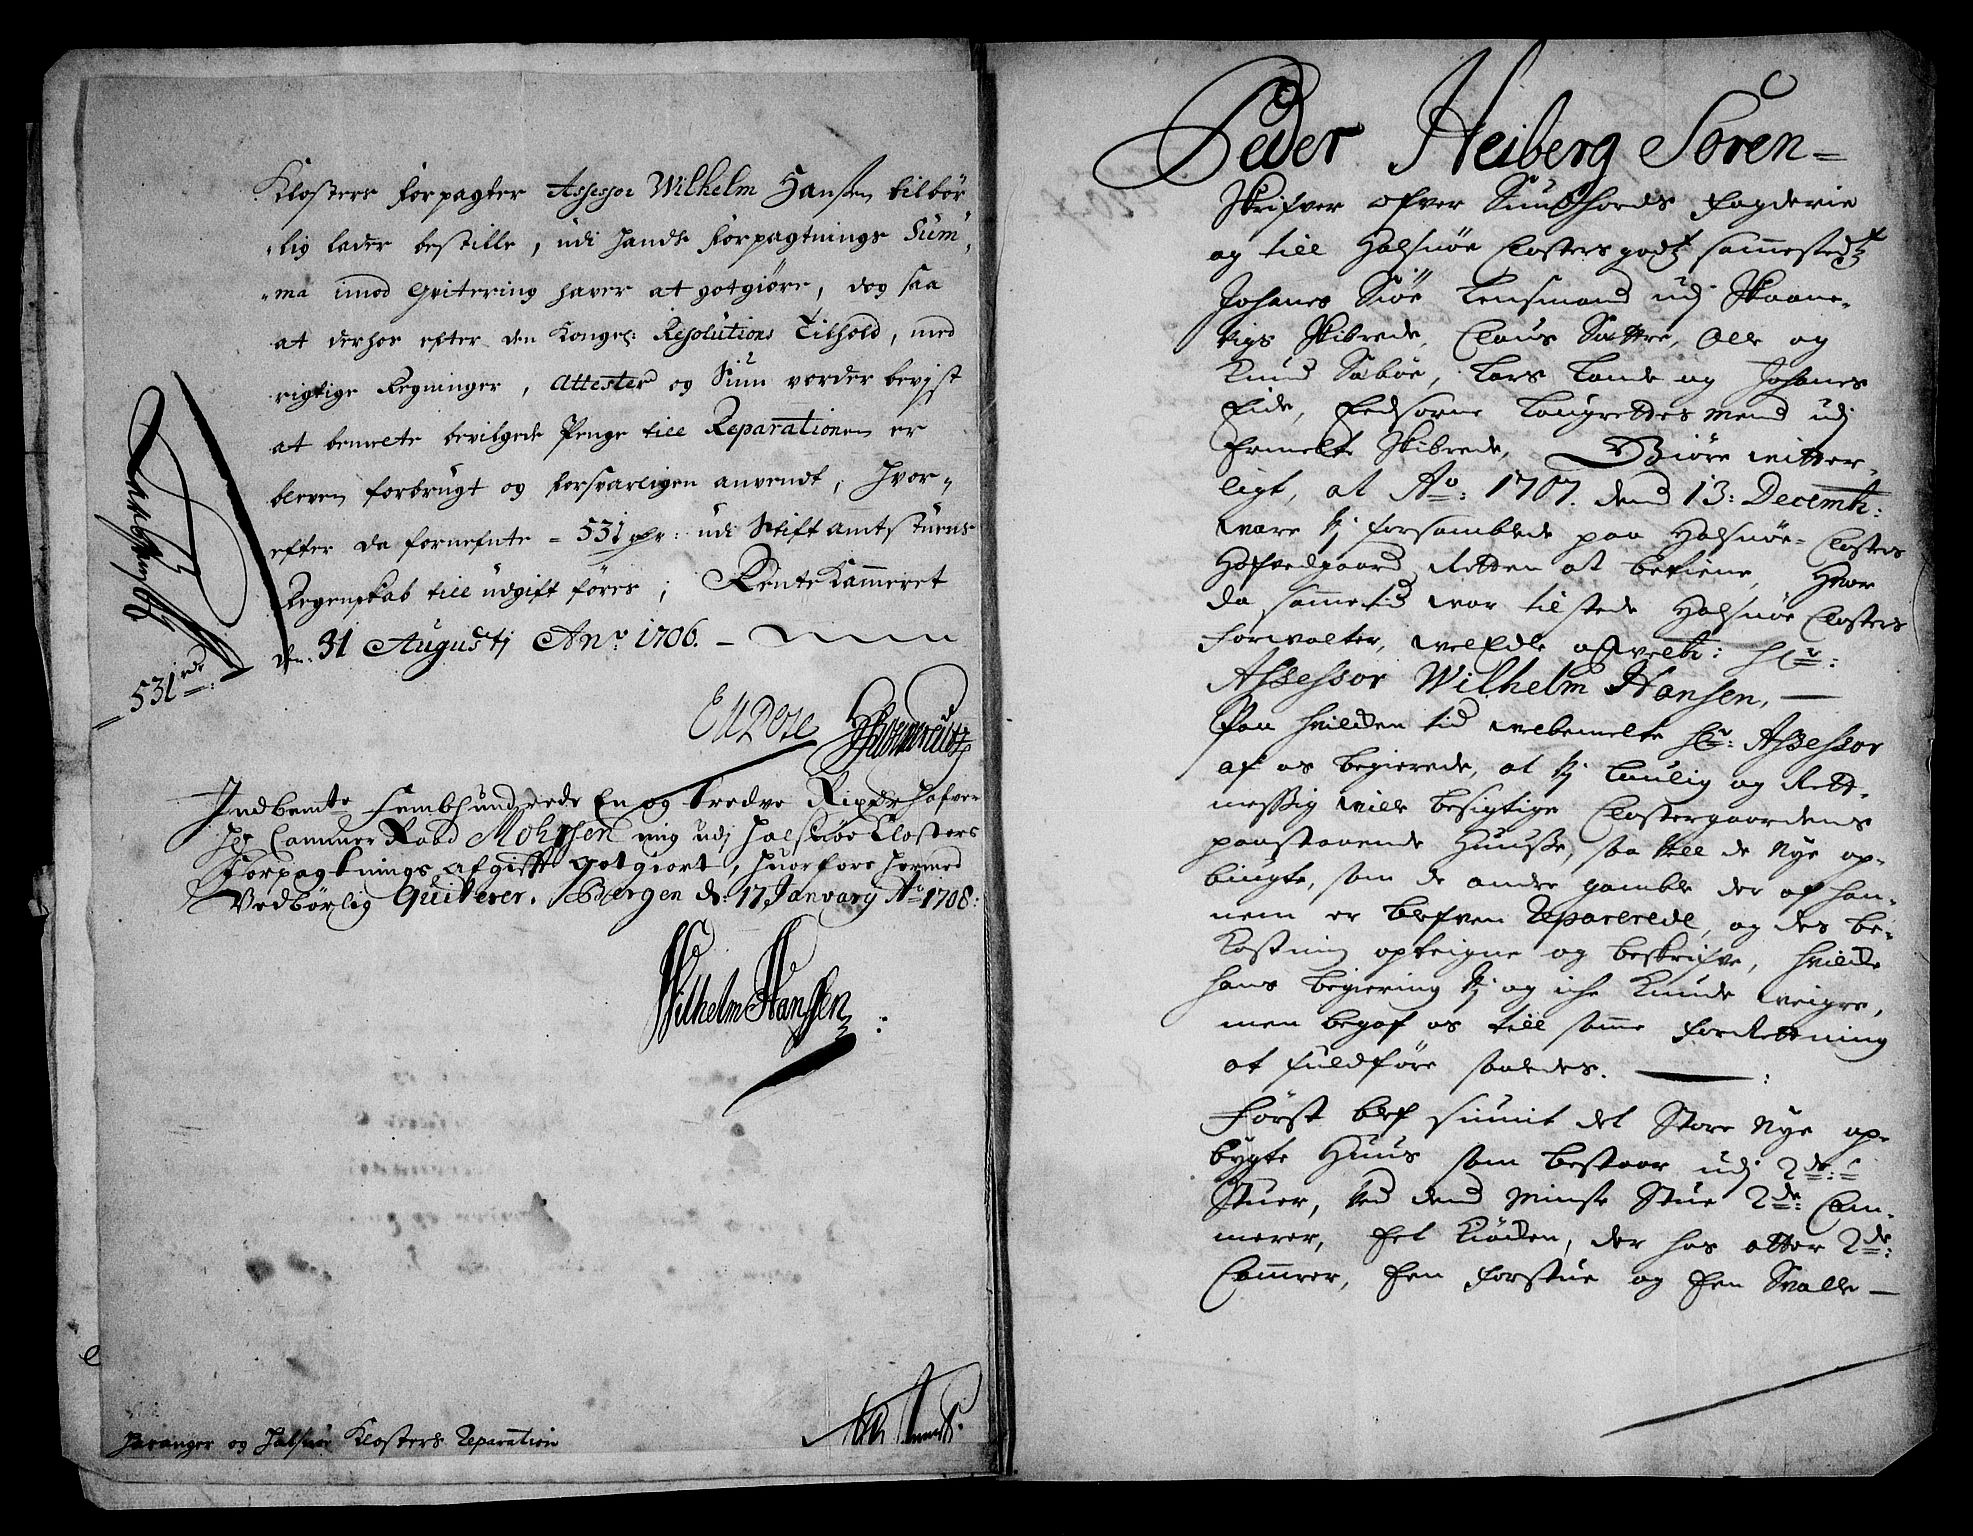 Klosters forpagter Assessor Wilhelm Hansen tilbør
lig lader bestille, udi hands forpagtnings Sum
ma imod qvitering haver at gotgiöre, dog saa
at derhos efter den Kongel: Resolutions Tilhold, med
rigtige Regninger, Attester og Siun vorder bevist
at bemelte bevilgede Penge till Reparationen er
bleven forbrugt og forsvarligen anvendt, hvor,,
efter de fornefnte - 531 rdr: udi Stiftamtstuens
Regenskab till udgift föres; RenteKammeret
den: 31 Augustj Anno 1706.
531 rdr
Indbemte Fembhundrede En og tredve Rixdr hafver
Hr Cammer Raad Mohrsen mig udj Halsnøe Closters
Forpagtnings afgifft gotgiort, huorfore hermed
Vedbörlig Quiterer. Bergen d: 17 January Ao 1708:
Wilhelm Hanssen
og Halsnøe Klosters Reparation
Peder Heiberg Soren=
Skrifver ofver Sundhords fogderie
og till Halsnöe Closters godtz sammestedtz
Johanes Siöe Lensmand udj Skaane-
vigs Skibrede, Claus Sættre, Olle og
Knud Sæböe, Lars Lande og Johanes
Eide, Eedsorne Laugrettes mend udj
bemelte Skibrede, Giöre vitter-
ligt, at Ao: 1707. dend 13: Decembr:
vare vj forsamblede paa Halsnöe- Closters
Hofvedgaard Retten at betiene, Hvor
da samme tid var tilstede Halsnöe Closters
forvalter, velEdle og velb: Hr:
Assessor Wilhelm Hansen,
Paa hvilcken tid velbemelte Hr: Assessor
af os begierede, at vj laulig og Rett-
messig ville besigtige Clostergaardens
paastaaende Huusse, saa vell de Nye op-
bingte, som de andre gamble der af han-
nem er blefven Reparerede, og des be-
kostning opteigne og beskrifve, hvilcke
hans begiering vj og iche kunde veigre,
men begaf os till samme forRettning
at fuldföre saaledes.
Först blef siunit det Store Nye op-
bygte Huus som bestaar udj 2de:
Stuer, ved dend Minste Stue 2de: Cam-
merer, Eet Kiöcken, der hos atter 2de:
Cammer, Een forstue og Een Svalle